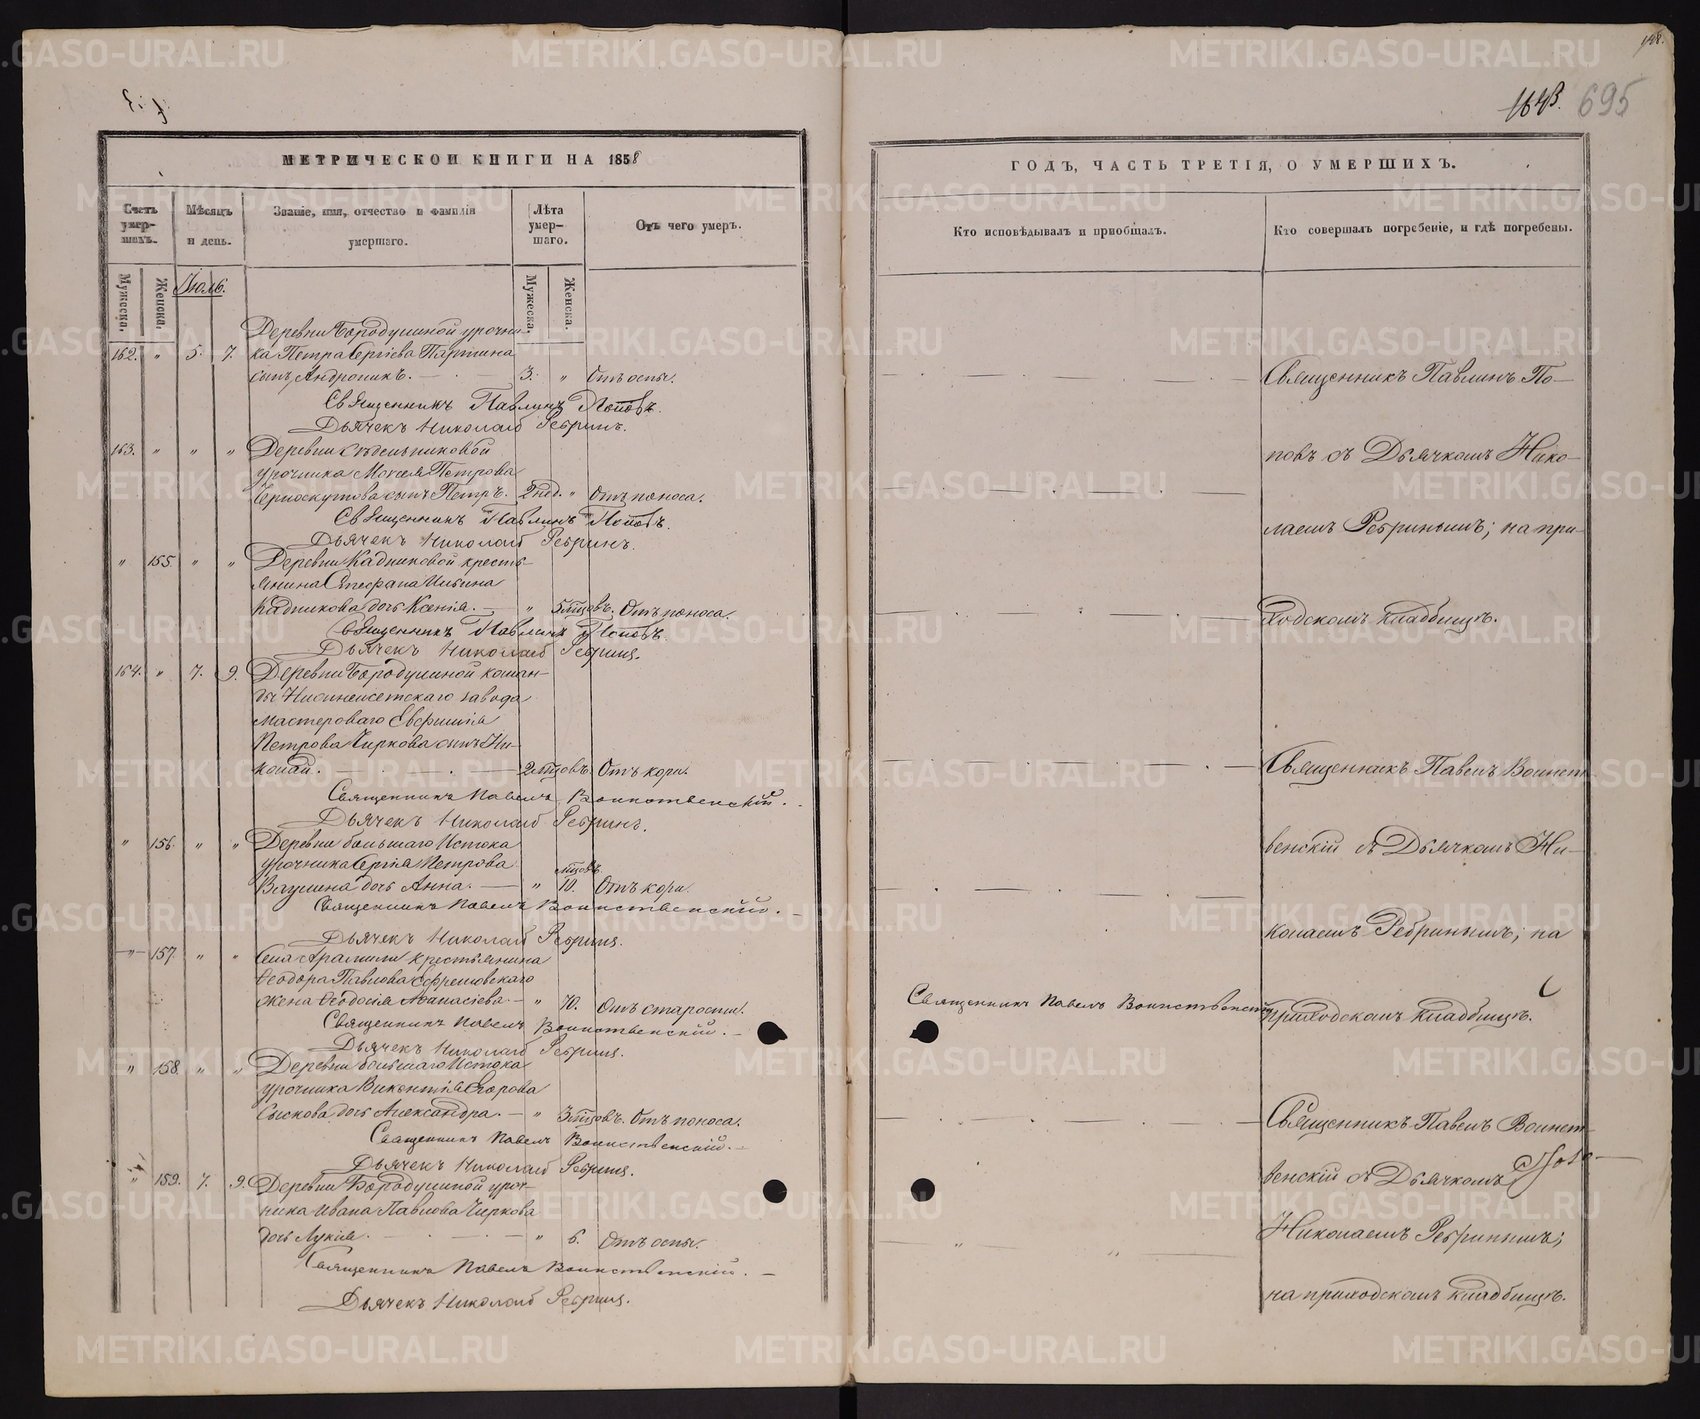 148.
164в. 695
МЕТРИЧЕСКОЙ КНИГИ НА 1858
Счетъ умер-шихъ.
Мѣсяцъ и день.
Званіе, имя, отчество и фамилія умершаго.
Лѣта умер-шаго.
Отъ чего умеръ.
Мужеска.
Женска.
Іюль.
Мужеска.
Женска.
Деревни Бородулиной урочни-
162. " 5. 7. ка Петра Сергіева Партина
сынъ Андроникъ. 3. " Отъ оспы.
Священникъ Павлинъ Поповъ.
Дьячекъ Николай Ребринъ.
163. " " " Деревни
урочника Моисея Петрова
Черноскутова сынъ Петръ. 2 нед. " Отъ поноса.
Священникъ Павлинъ Поповъ.
Дьячекъ Николай Ребринъ.
" 155 " " Деревни Кадниковой кресть-
янина Стефана Ильина
Кадникова дочь Ксенія. " 5 мцовъ. Отъ поноса.
Священникъ Павлинъ Поповъ.
Дьячекъ Николай Ребринъ.
164. " 7. 9. Деревни Бородулиной коман-
ды Нижнеисетскаго завода
мастероваго Евфимія
Петрова Чиркова сынъ Ни-
колай. 2 мцовъ. Отъ кори.
Священникъ Павелъ Воинственскій.
Дьячекъ Николай Ребринъ.
" 156. " " Деревни большаго Истока
урочника Сергія Петрова
мцовъ.
Ваулина дочь Анна. " 10. Отъ кори.
Священникъ Павелъ Воинственскій.
Дьячекъ Николай Ребринъ.
" 157. " " Села Арамили крестьянина
Ѳеодора Павлова Ефремовскаго
жена Ѳеодосія Аѳанасіева. " 70. Отъ старости.
Священникъ Павелъ Воинственскій.
Дьячекъ Николай Ребринъ.
" 158. " " Деревни большаго Истока
урочника Викентія Егорова
Сыскова дочь Александра. " 3 мцовъ. Отъ поноса.
Священникъ Павелъ Воинственскій.
Дьячекъ Николай Ребринъ.
" 159. 7. 9. Деревни Бородулиной уроч-
ника Ивана Павлова Чиркова
дочь Лукія. " 6. Отъ оспы.
Священникъ Павелъ Воинственскій.
Дьячекъ Николай Ребринъ.
ГОДЪ, ЧАСТЬ ТРЕТІЯ, О УМЕРШИХЪ.
Кто исповѣдывалъ и пріобщалъ.
Кто совершалъ погребеніе, и гдѣ погребены.
Священникъ Павлинъ По-
повъ съ Дьячкомъ Нико-
лаемъ Ребринымъ; на при-
ходскомъ кладбищѣ.
Священникъ Павелъ Воинст-
венскій съ Дьячкомъ Ни-
колаемъ Ребринымъ; на
Священникъ Павелъ Воинственскій
приходскомъ кладбищѣ.
Священникъ Павелъ Воинст-
венскій съ Дьячкомъ
Николаемъ Ребринымъ;
на приходскомъ кладбищѣ.
METRIKI.GASO-URAL.RU